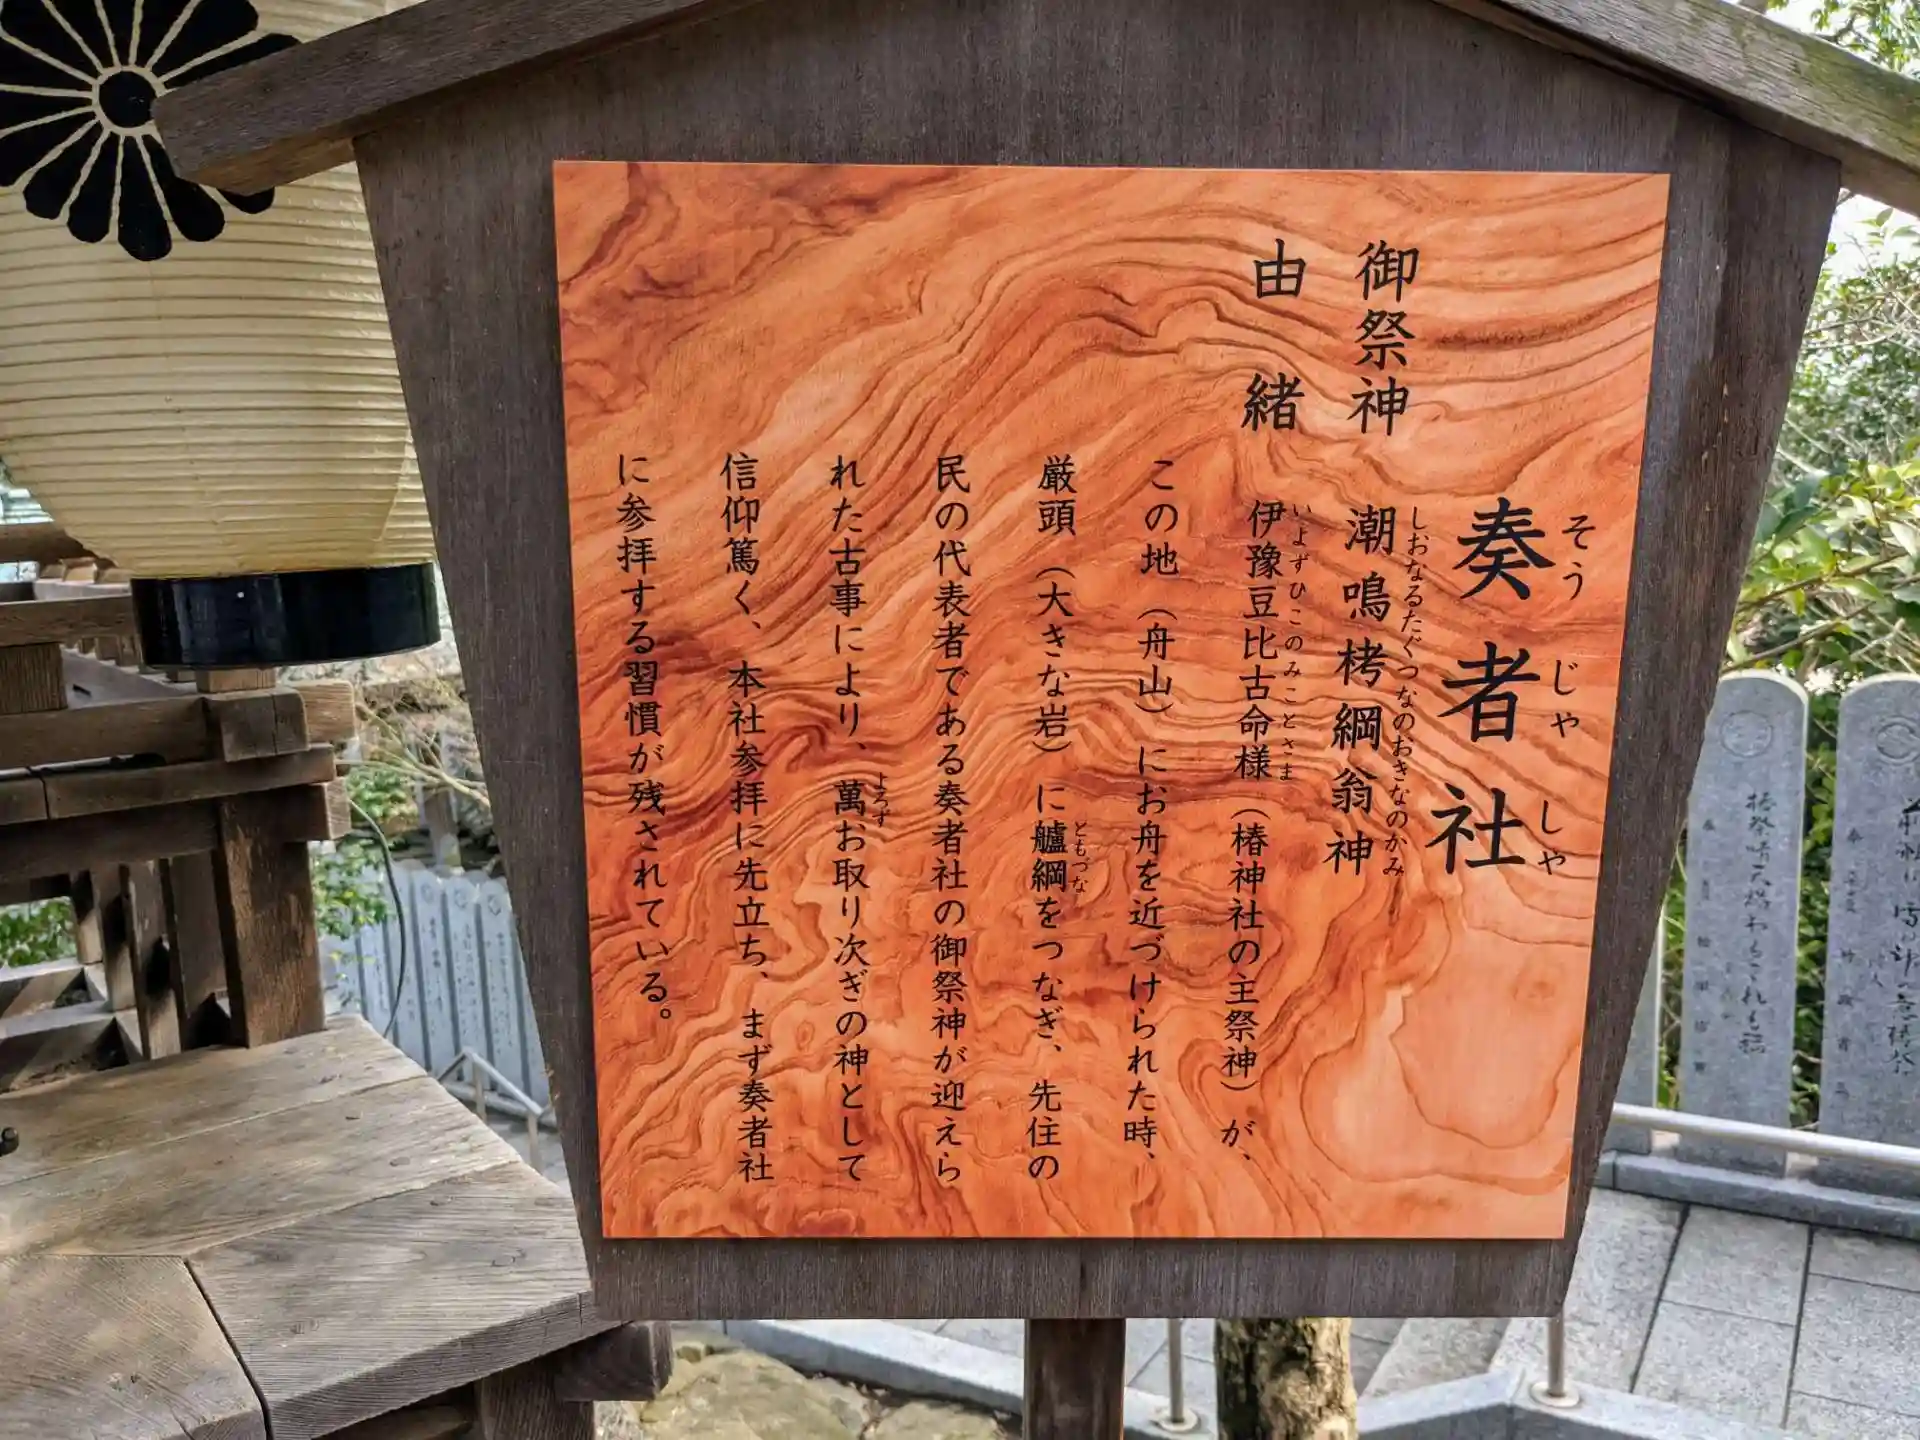 奏者社
そうじゃしゃ
御祭神 潮鳴栲綱翁神
しおなるたぐつなのおきなのかみ
由緒 伊豫豆比古命様（椿神社の主祭神）が、
いよずひこのみことさま
この地（舟山）にお舟を近づけられた時、
厳頭（大きな岩）に艫綱をつなぎ、先住の
ともづな
民の代表者である奏者社の御祭神が迎えら
れた古事により、萬お取り次ぎの神として
よろず
信仰篤く、本社参拝に先立ち、まず奏者社
に参拝する習慣が残されている。